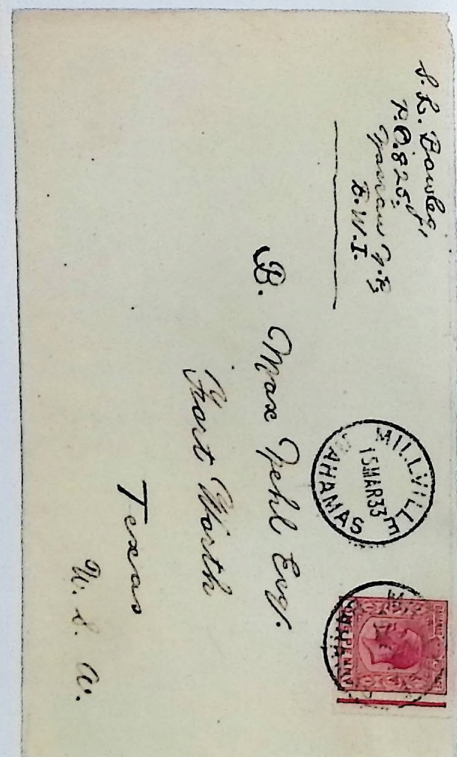 S. L. Bowleg
P.O. 825
Nassau N.P.
B.W.I.
B. Max Mehl Esq.
Fort Worth
Texas
U. S. A.
MILLVILLE
15MAR33
BAHAMAS